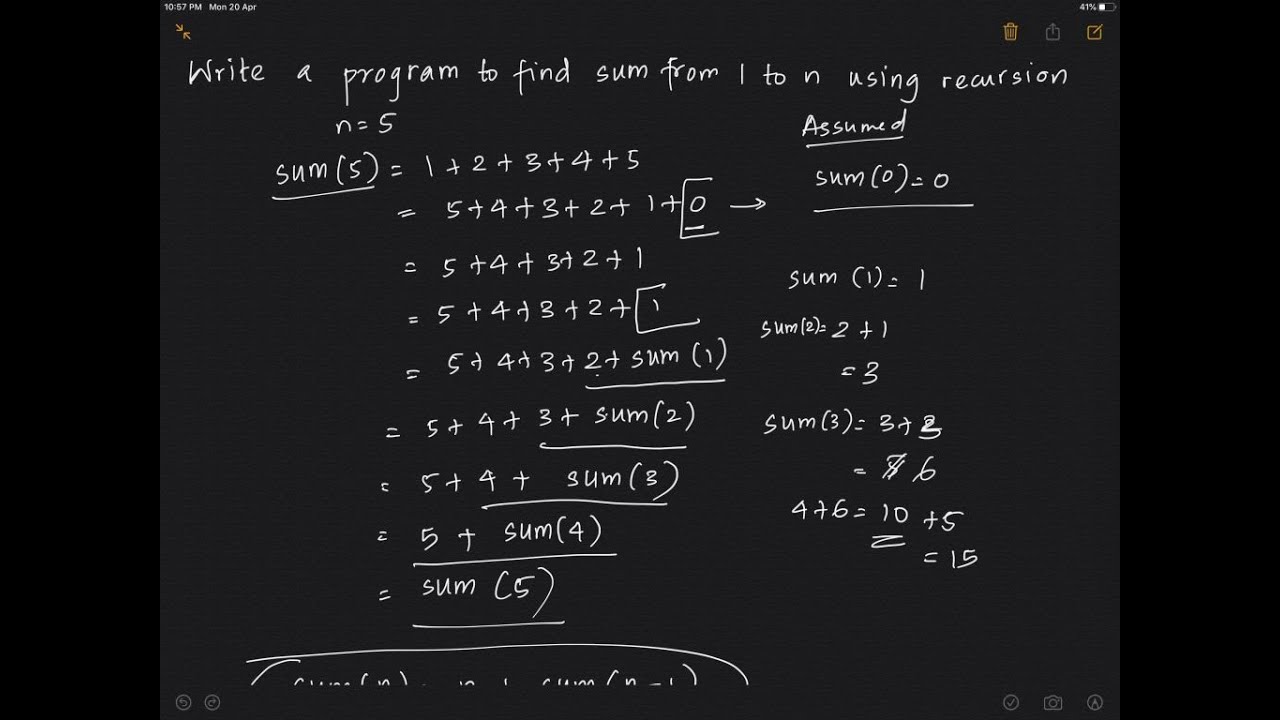 10:57 PM Mon 20 Apr
41%
Write a program to find sum from 1 to n using recursion
n = 5
Assumed
sum(5) = 1 + 2 + 3 + 4 + 5
sum(0) = 0
= 5 + 4 + 3 + 2 + 1 + 0 →
= 5 + 4 + 3 + 2 + 1
sum (1) = 1
= 5 + 4 + 3 + 2 + 1
sum(2) = 2 + 1
= 5 + 4 + 3 + 2 + sum (1)
= 3
= 5 + 4 + 3 + sum(2)
sum(3) = 3 + 3
= 5 + 4 + sum(3)
= 6
4 + 6 = 10 + 5
= 5 + sum(4)
= 15
= sum (5)
sum(n) = n + sum(n-1)